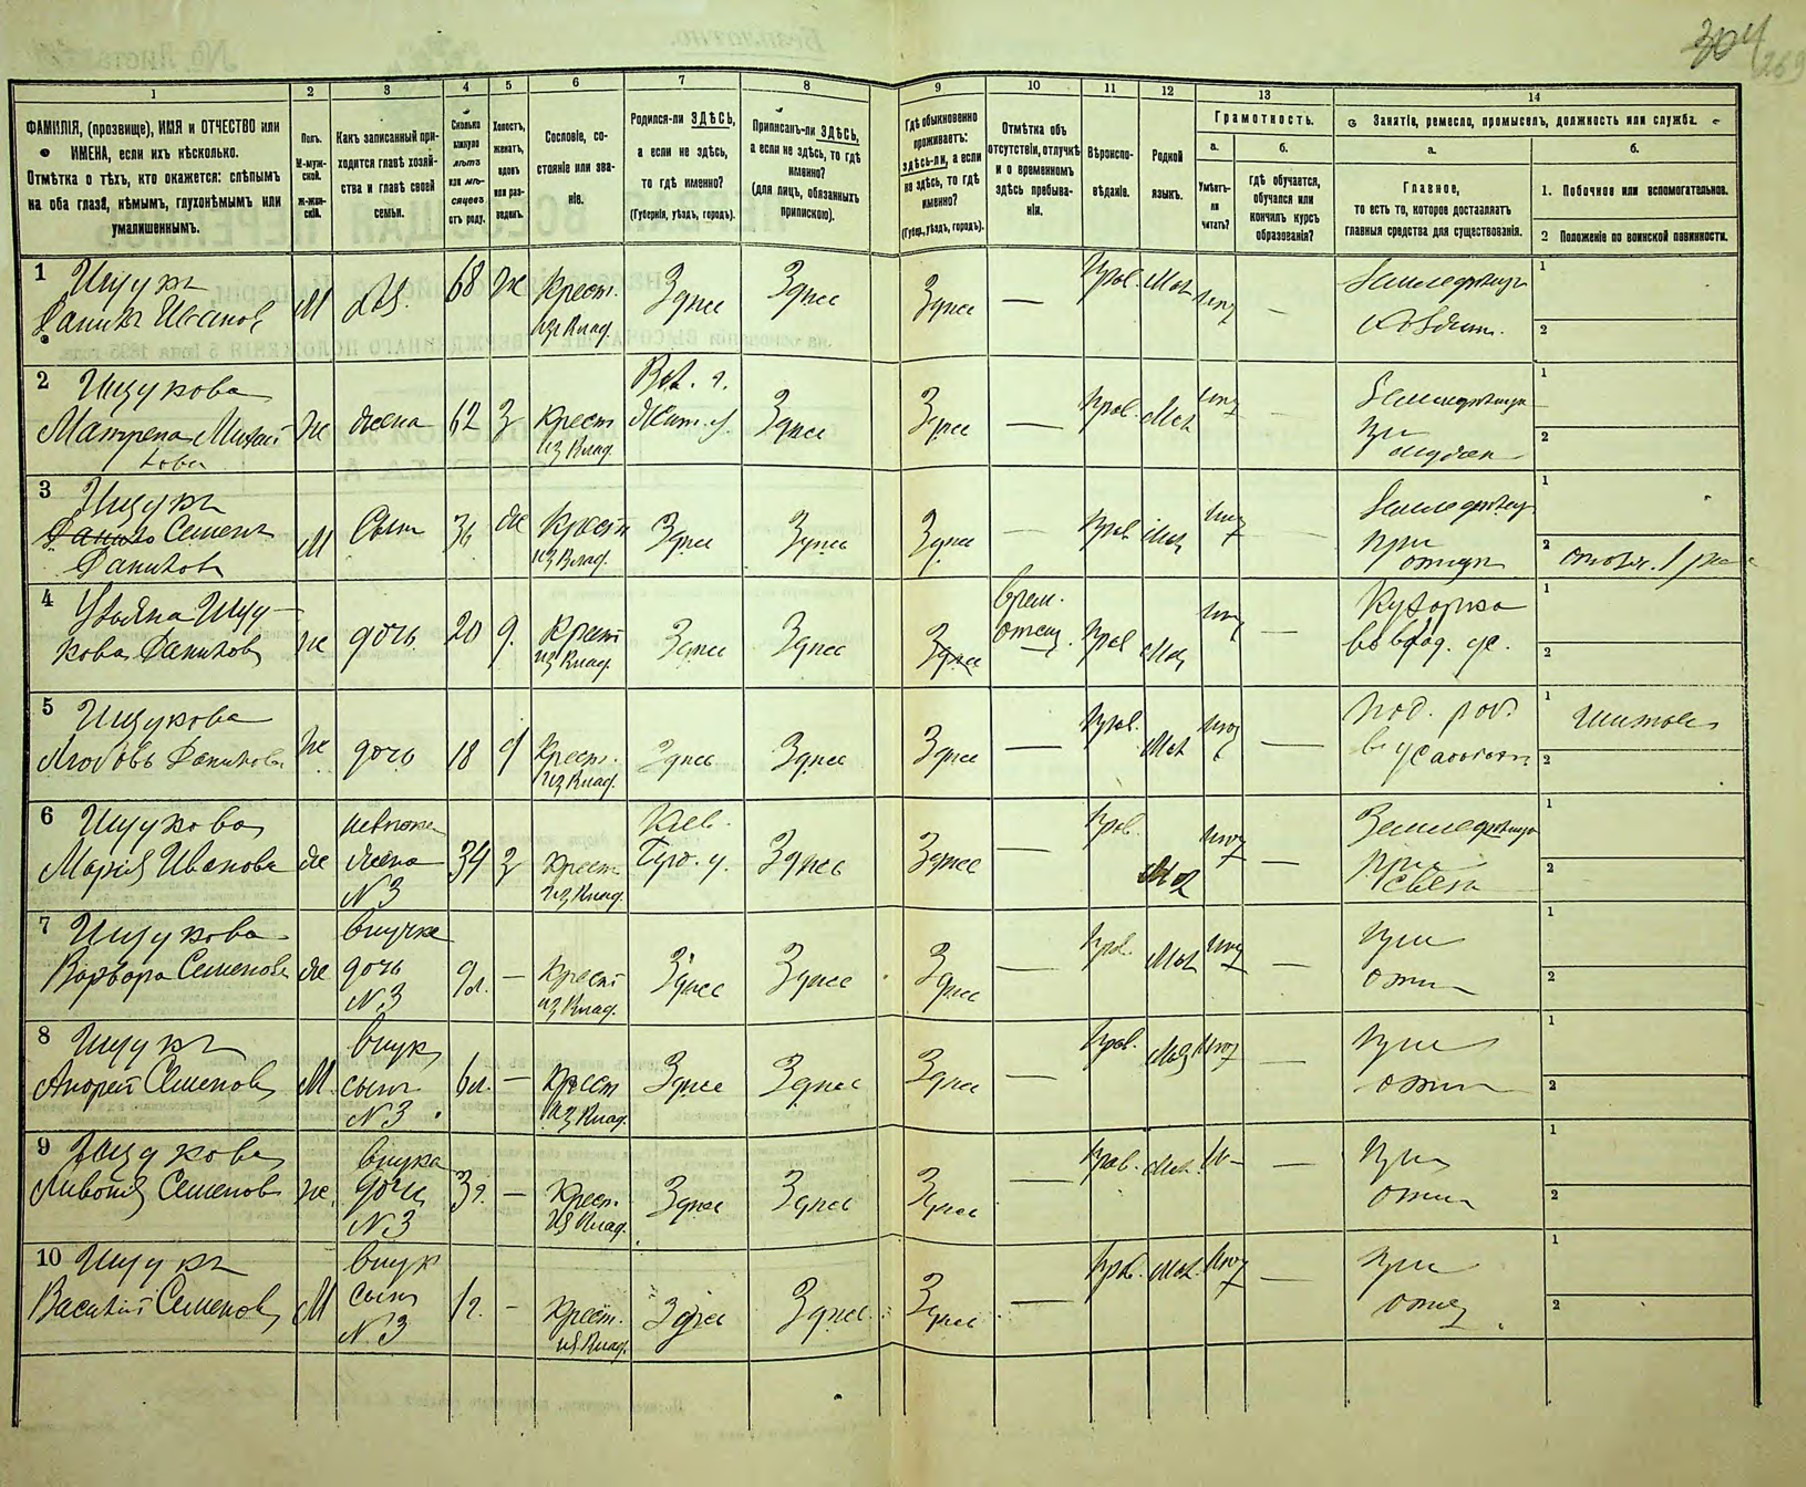 304
269
1
ФАМИЛІЯ, (прозвище), ИМЯ и ОТЧЕСТВО или
ИМЕНА, если ихъ нѣсколько.
Отмѣтка о тѣхъ, кто окажется: слѣпымъ
на оба глаза, нѣмымъ, глухонѣмымъ или
умалишеннымъ.
2
Полъ.
М-муж-
ской.
Ж-жен-
скій.
3
Какъ записанный при-
ходится главѣ хозяй-
ства и главѣ своей
семьи.
4
Сколько
минуло
лѣтъ
или мѣ-
сяцевъ
отъ роду.
5
Холостъ,
женатъ,
вдовъ
или раз-
веденъ.
6
Сословіе, со-
стояніе или зва-
ніе.
7
Родился-ли ЗДѢСЬ,
а если не здѣсь,
то гдѣ именно?
(Губернія, уѣздъ, городъ).
8
Приписанъ-ли ЗДѢСЬ,
а если не здѣсь, то гдѣ
именно?
(для лицъ, обязанныхъ
припискою).
9
Гдѣ обыкновенно
проживаетъ:
здѣсь-ли, а если
не здѣсь, то гдѣ
именно?
(Губер., уѣздъ, городъ).
10
Отмѣтка объ
отсутствіи, отлучкѣ
и о временномъ
здѣсь пребыва-
ніи.
11
Вѣроиспо-
вѣданіе.
12
Родной
языкъ.
13
Грамотность.
а.
Умѣетъ-
ли
читать?
б.
Гдѣ обучается,
обучался или
кончилъ курсъ
образованія?
14
Занятіе, ремесло, промыселъ, должность или служба.
а.
Главное,
то есть то, которое доставляетъ
главныя средства для существованія.
б.
1. Побочное или вспомогательное.
2 Положеніе по воинской повинности.
1
Ищукъ
Данилъ Ивановъ
М
68
Крест.
изъ Влад.
Здѣсь
Здѣсь
Здѣсь
—
Прав.
Мал
—
1
2
2 Ищукова
Матрена Михай
лова
Ж
жена
62
З
Крест
из Влад.
Жит. у.
Здѣсь
Здѣсь
—
Прав.
Мал
—
При
1
2
3
Ищукъ
Семенъ
Даниловъ
М
Сынъ
Ж
Крестъ
из Влад.
Здѣсь
Здѣсь
Здѣсь
—
Прав
При
1
2
4
Ульяна Ищу-
кова Данилов
Ж
дочь
20
Крест
из Влад.
Здѣсь
Здѣсь
Здѣсь
Врем.
Прав
—
Кухарка
1
2
5
Ищукова
Любовь Данилова
Ж
дочь
18
Крест.
из Влад.
Здѣсь
Здѣсь
Здѣсь
—
Прав.
Мал
—
Под. раб.
1 Шитье
2
6 Ищукова
Марія Иванова
Ж
невѣстка
жена
№ 3
34
З
Крест
из Влад.
Кіев.
Здѣсь
Здѣсь
—
Прав.
Мал
—
При
1
2
7 Ищукова
Варвара Семенова
Ж
внучка
дочь
№ 3
9 л.
—
Крест
из Влад.
Здѣсь
Здѣсь
Здѣсь
—
Прав.
Мал
—
При
отц
1
2
8 Ищукъ
Андрей Семеновъ
М
внукъ
сынъ
№ 3
6 л.
—
Крест
из Влад.
Здѣсь
Здѣсь
Здѣсь
—
Прав.
—
При
1
2
9 Ищукова
Семенов
Ж
внука
дочь
№ 3
3 г.
—
Крест.
из Влад.
Здѣсь
Здѣсь
Здѣсь
—
Прав.
Мал.
—
При
1
2
10 Ищукъ
Василій Семеновъ
М
внукъ
сынъ
№ 3
1 г.
—
Крест.
из Влад.
Здѣсь
Здѣсь
Здѣсь
—
Прав.
Мал.
—
При
1
2